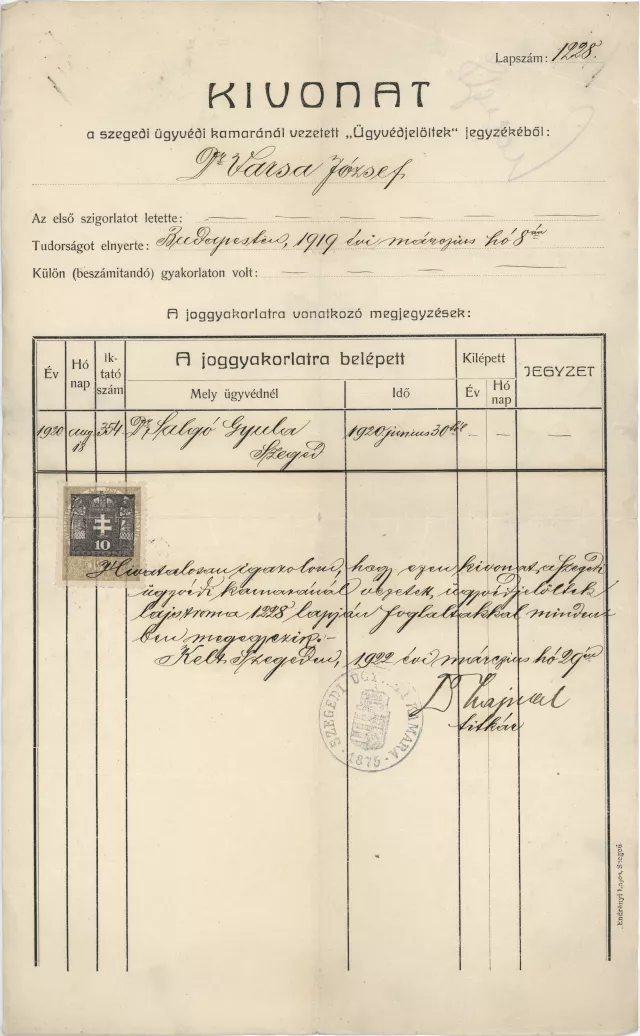 Lapszám: 1228.
KIVONAT
a szegedi ügyvédi kamaránál vezetett „Ügyvédjelöltek" jegyzékéből:
Dr Varsa József
Az első szigorlatot letette: — — — — — —
Tudorságot elnyerte: Budapesten, 1919 évi március hó 8án
Külön (beszámitandó) gyakorlaton volt: — — — —
A joggyakorlatra vonatkozó megjegyzések:
Év Hó nap Ik-tató szám A joggyakorlatra belépett Kilépett JEGYZET
Mely ügyvédnél Idő Év Hó nap
1920 aug 18 354 Dr. Salgó Gyula 1920 junius 30tól — — —
Szeged
10
Hivatalosan igazolom, hogy ezen kivonat a szegedi
ügyvédi kamaránál vezetett ügyvédjelöltek
lajstroma 1228 lapján foglaltakkal minden-
ben megegyezik.-
Kelt Szegeden, 1922 évi március hó 29én
Dr
titkár
SZEGEDI ÜGYVÉDI KAMARA
1875
Endrényi Lajos, Szeged.